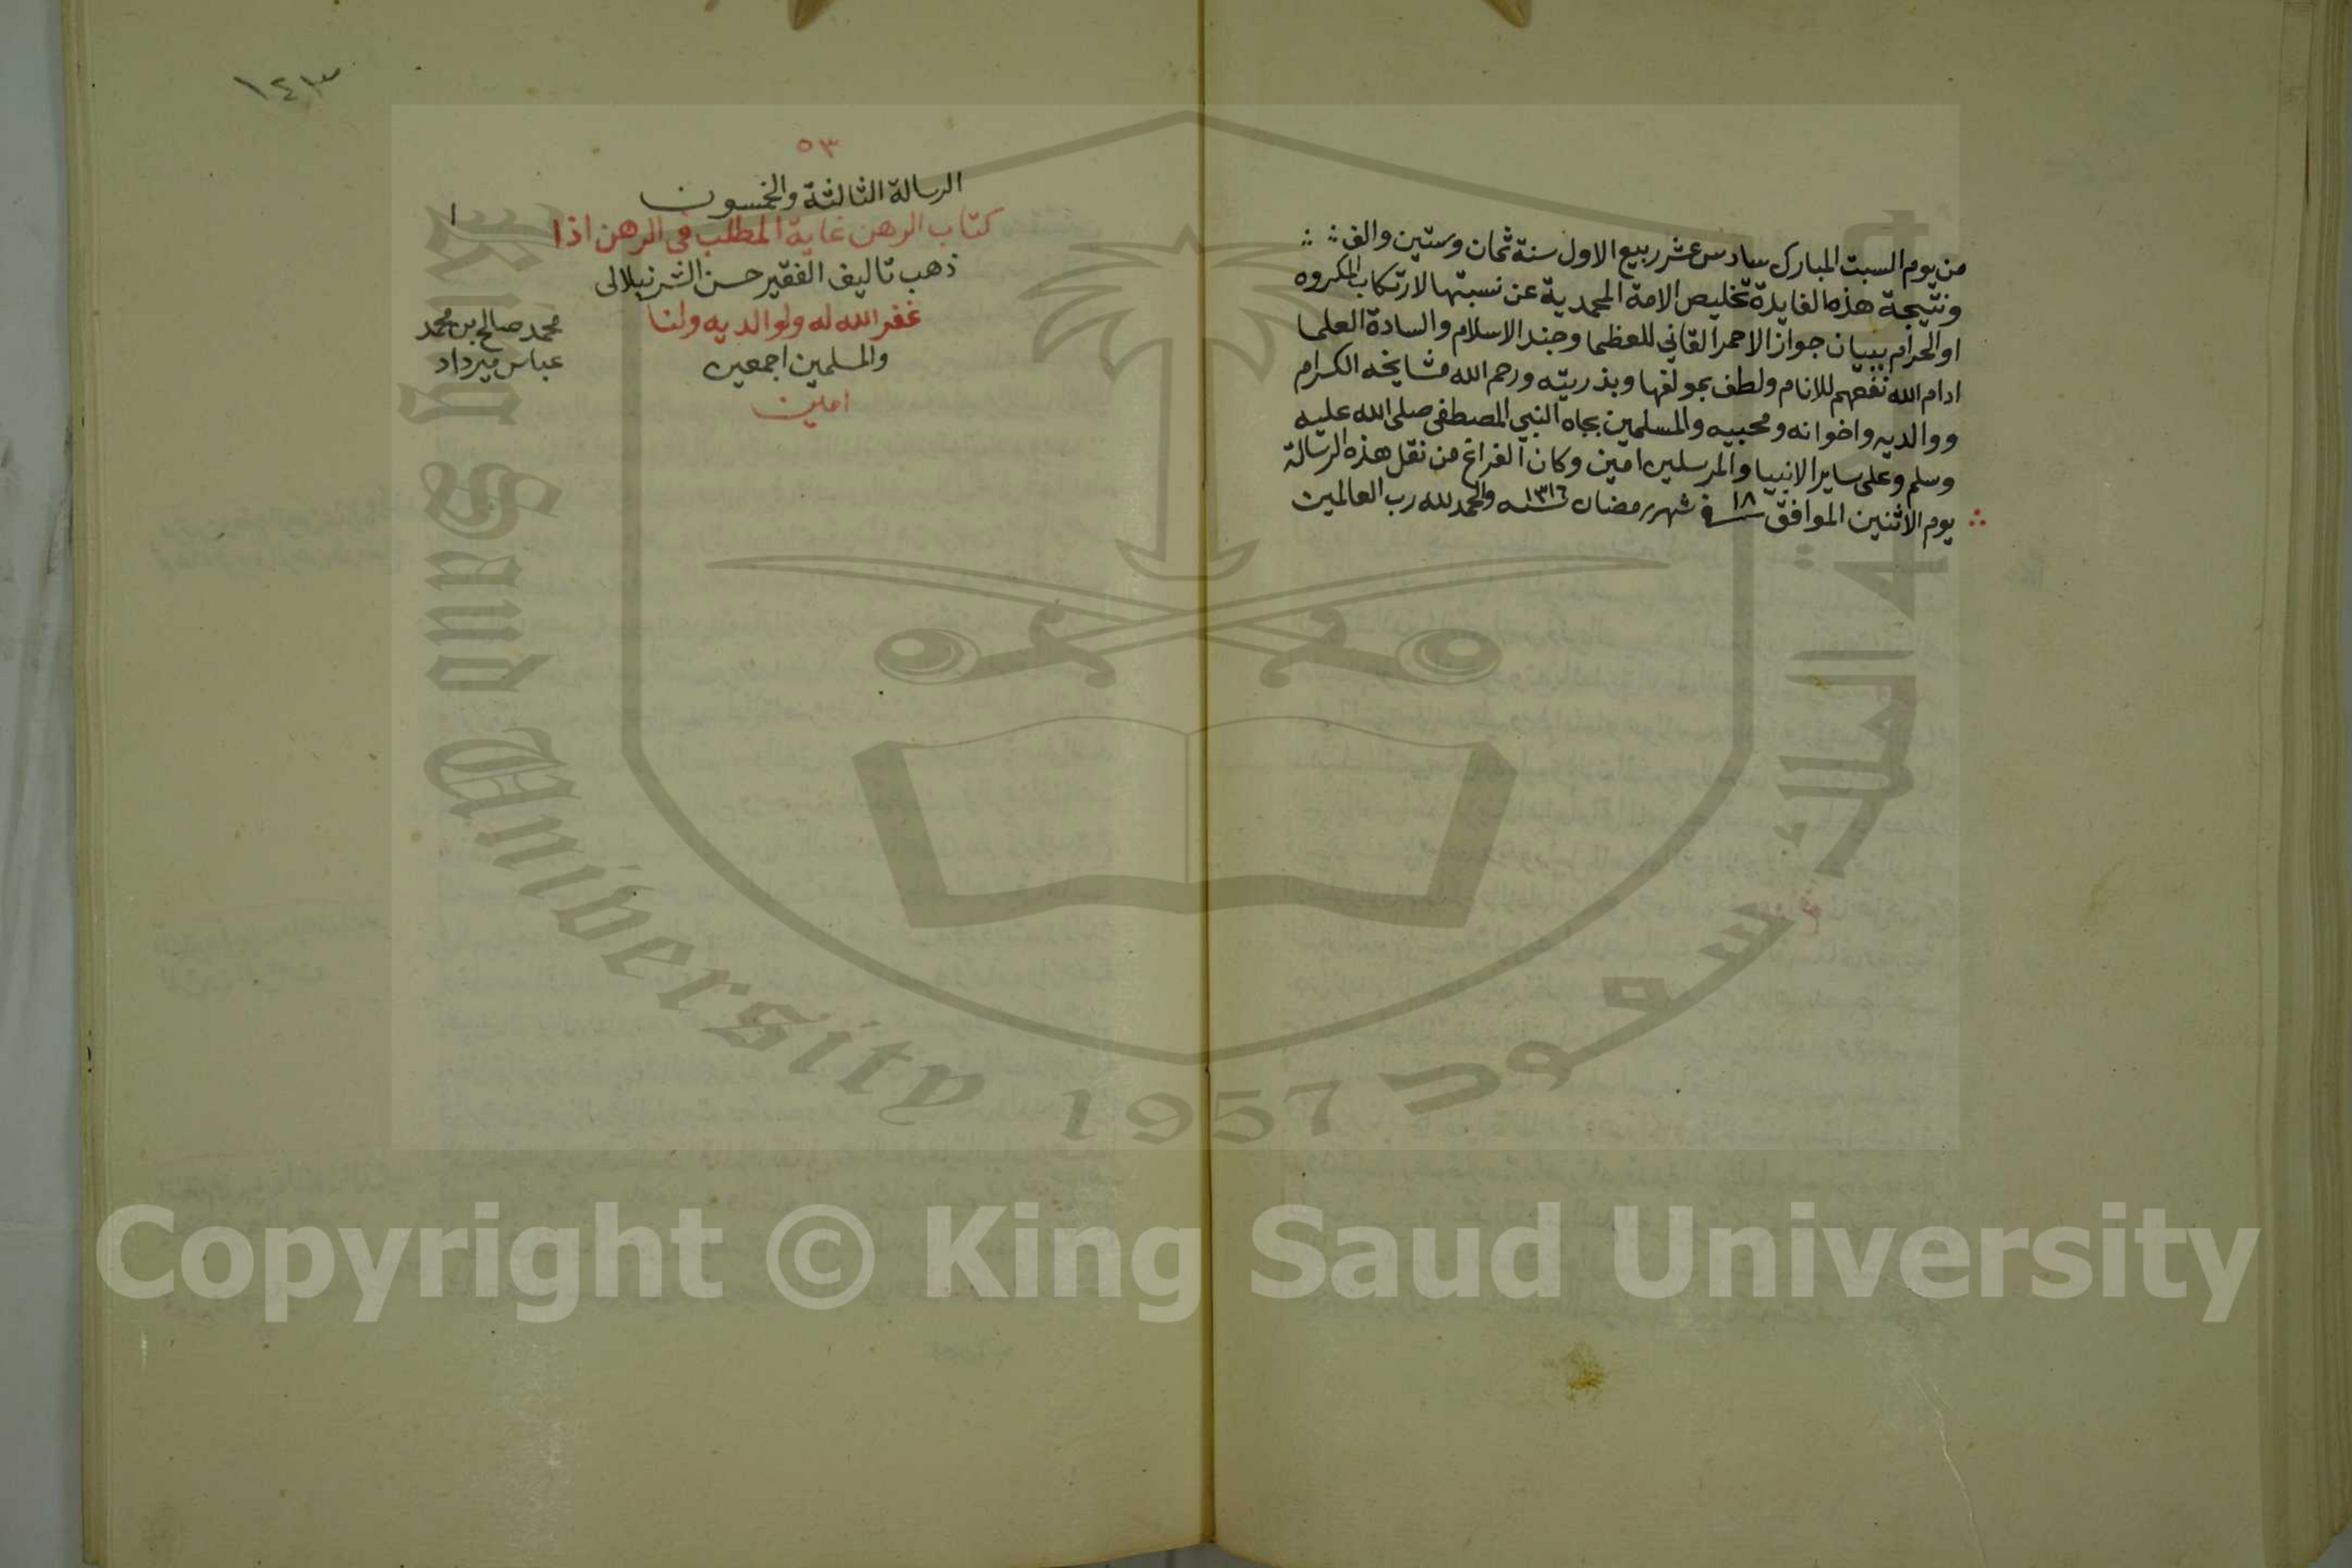 من يوم السبت المبارك سادس عشر ربيع الاول سنة ثمان وستين والف
ونتيجة هذه الفايدة تخليص الامة المحمدية عن نسبتها لارتكاب المكروه
او الحرام ببيان جواز الاحمر القاني للعظما وجند الاسلام والسادة العلما
ادام الله نفعهم للانام ولطف بمولفها وبذريته ورحم الله مشايخه الكرام
ووالديه واخوانه ومحبيه والمسلمين بجاه النبي المصطفى صلى الله عليه
وسلم وعلى ساير الانبيا والمرسلين امين وكان الفراغ من نقل هذه الرسالة
يوم الاثنين الموافق ١٨ في شهر رمضان سنه ١٣١٦ والحمد لله رب العالمين
١٤٣
٥٣
الرسالة الثالثة والخمسون
كتاب الرهن غاية المطلب في الرهن اذا
ذهب تاليف الفقير حسن الشرنبلالى
غفر الله له ولوالديه ولنا
والمسلمين اجمعين
امين
١
محمد صالح بن محمد
عباس ميرداد
King Saud University 1957
جامعة الملك سعود
Copyright © King Saud University